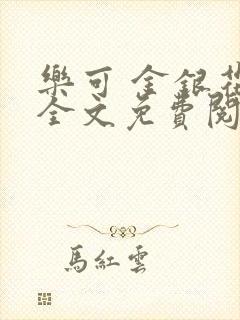 樂可 金銀花
全文免費閱
馬紅雲